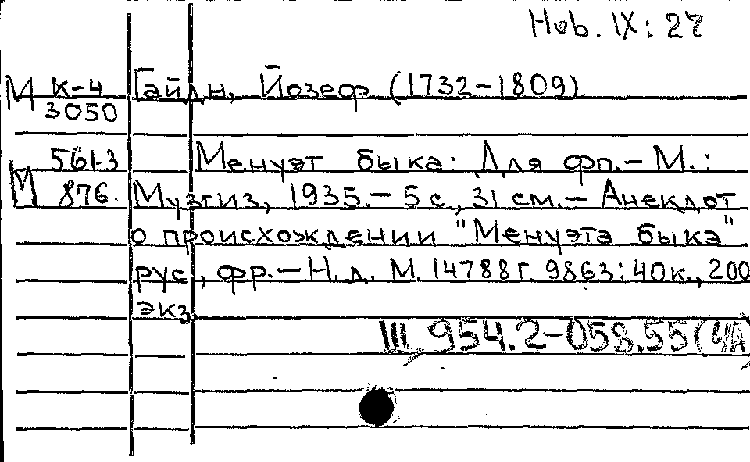 Hob. IX: 27
М К-4 Гайдн, Йозеф (1732-1809)
3050
561-3 Менуэт быка: Для фп.- М.:
М 876. Музгиз, 1935.- 5 с., 31 см.- Анекдот
о происхождении "Менуэта быка"
рус., фр.- Н. д. М. 14788 г. 9863: 40к., 200
экз.
III 954.2-058.55(4А)